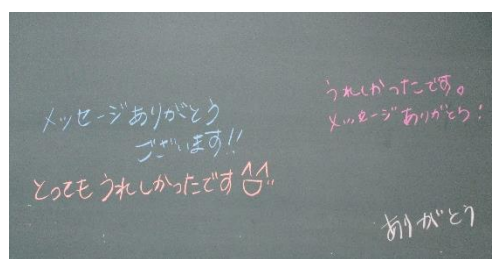 メッセージありがとう
ございます!!
とってもうれしかったです
うれしかったこです。
メッセージありがとう!
ありがとう